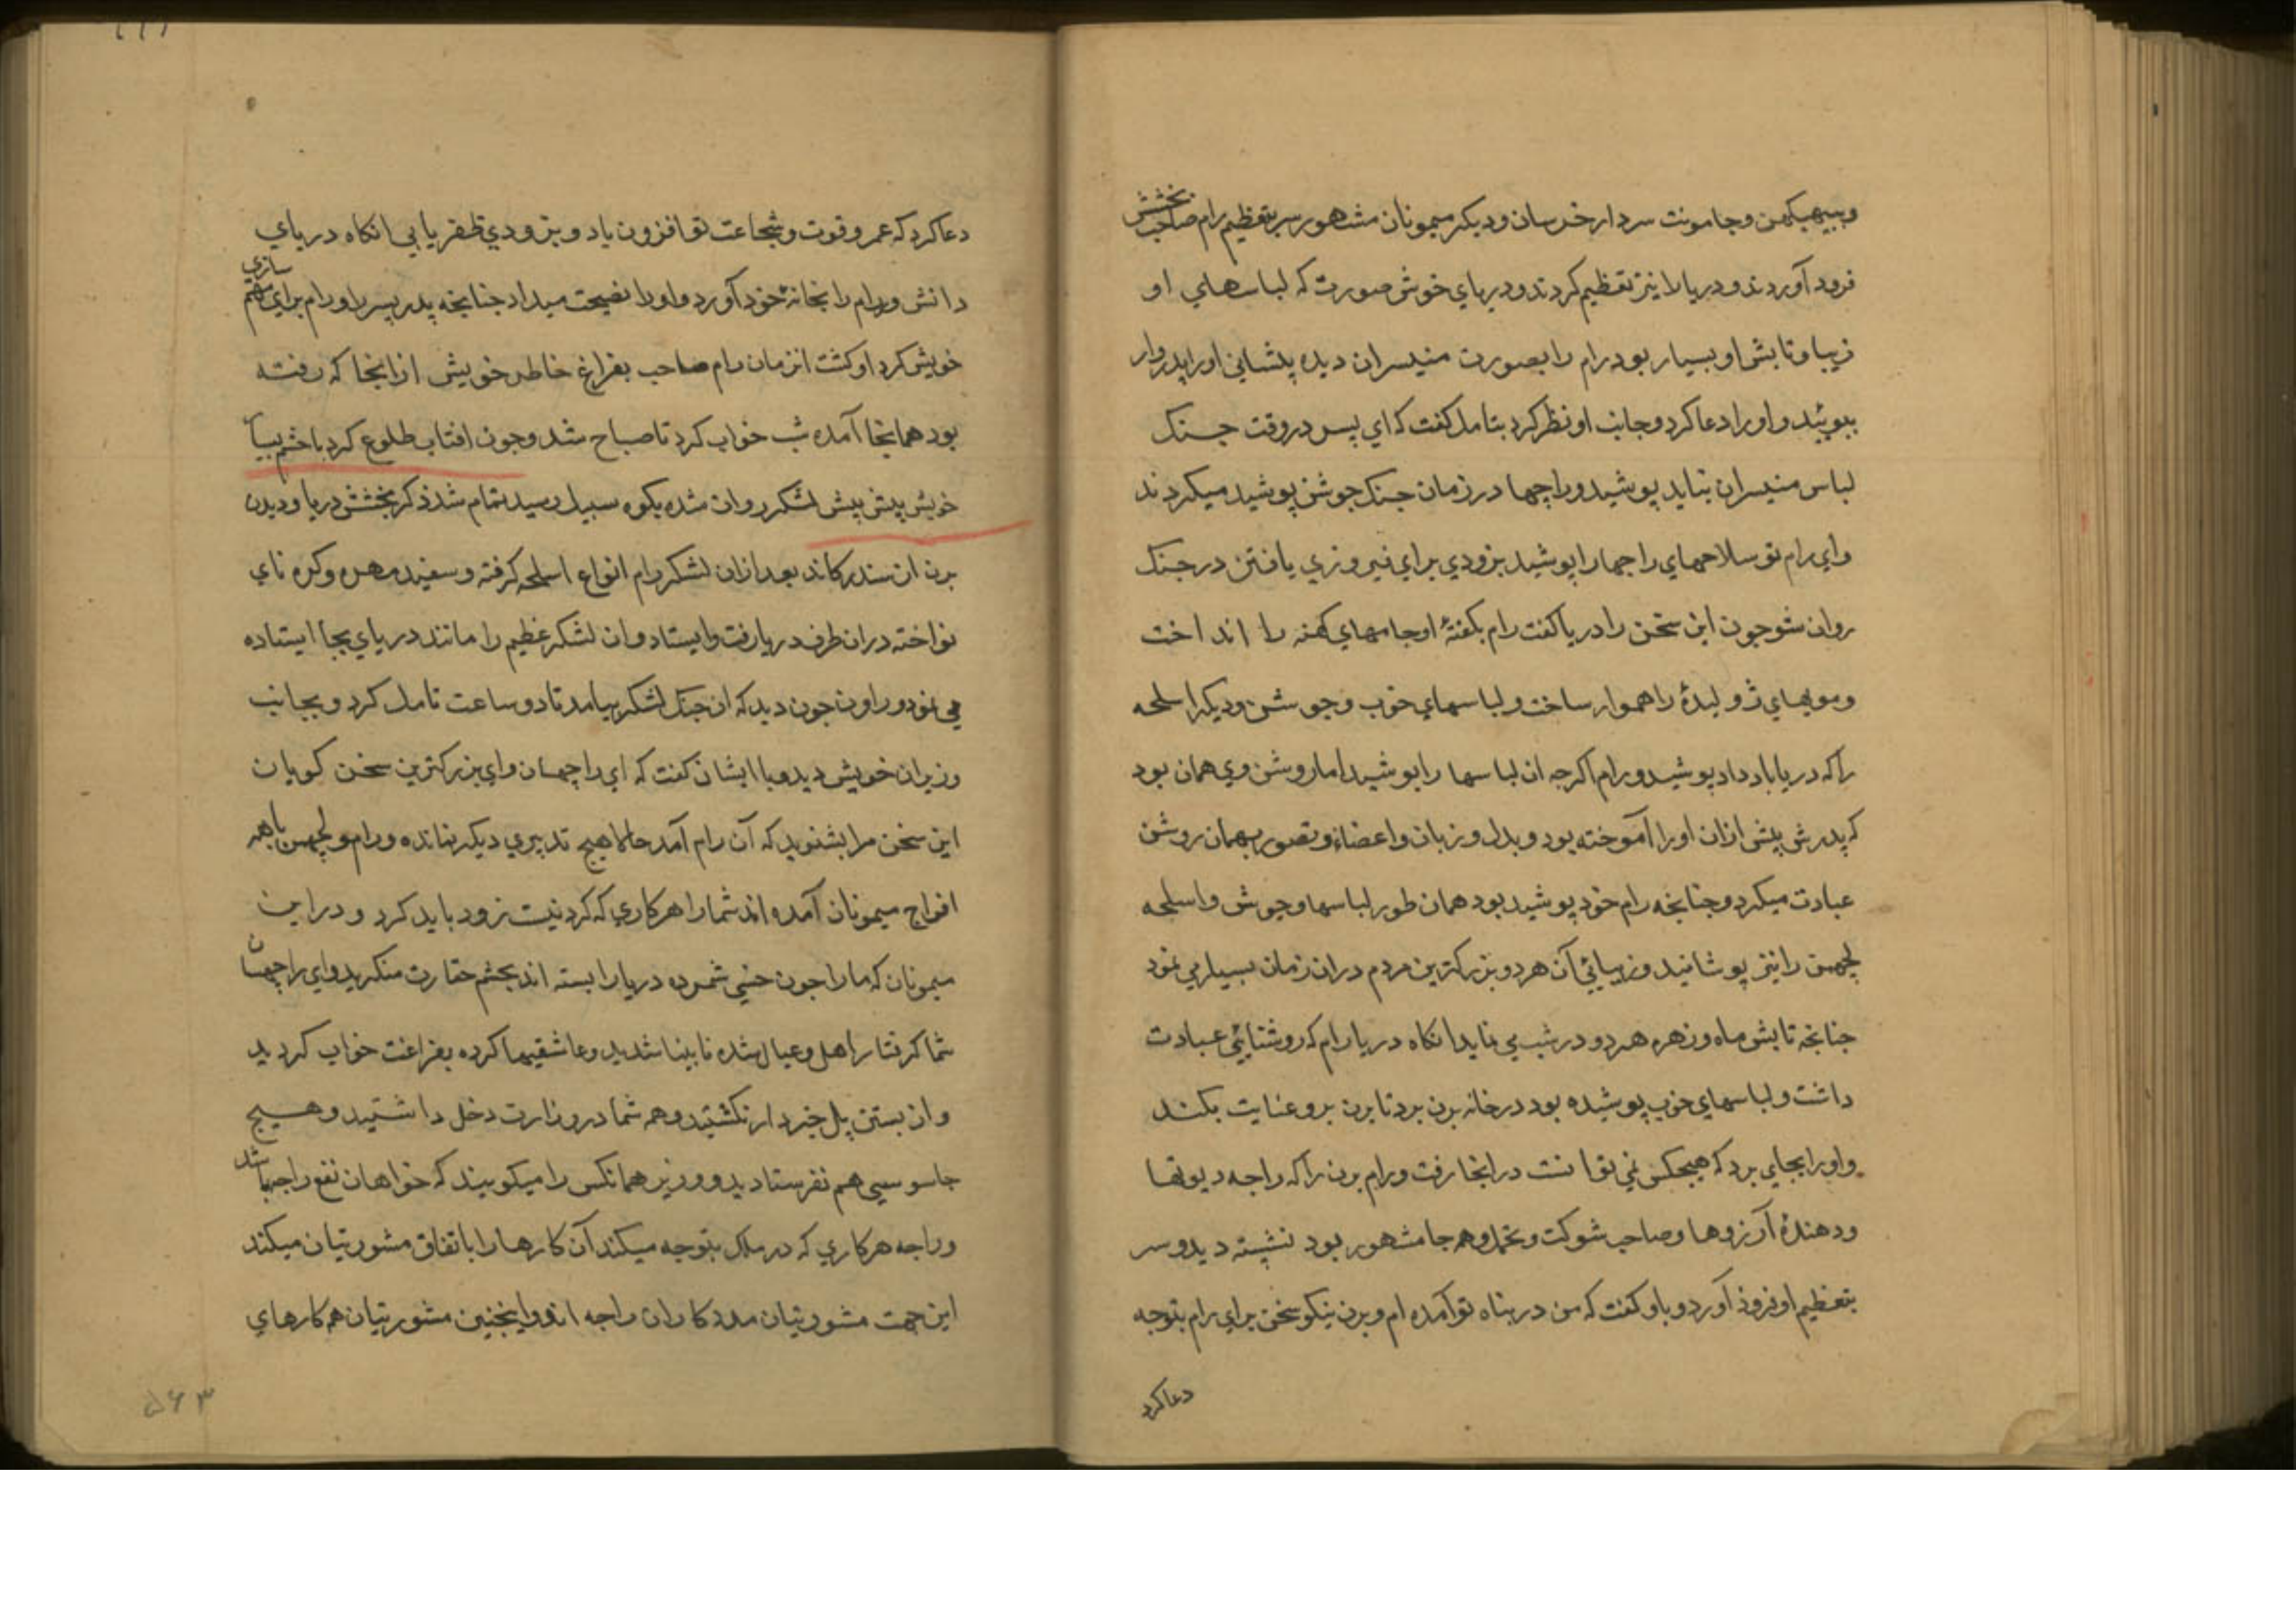 وبیبهیکهن وجامونت سردار خرسان ودیکر میمونان مشهور سر بتعظیم رام صاحب بخشش
فرود آوردند ودریا را نیز تعظیم کردند ودریای خوش صورت که لباسهای او
زیبا وتابش او بسیار بود رام را بصورت منیسران دیده پیشانی اورا پدروار
ببوئید واورا دعا کرد وجانب او نظر کرد بتامل کفت که ای پسر در وقت جنک
لباس منیسران نباید پوشید وراجها در زمان جنک جوشن پوشید میکردند
وای رام تو سلاحهای راجها را پوشید بزودی برای فیروزی یافتن در جنک
روان شو جون این سخن را دریا کفت رام بکفتهٔ او جامهای کهنه را انداخت
ومویهای ژولیدهٔ را هموار ساخت ولباسهای خوب وجوشن ودیکر اسلحه
را که دریا باو داد پوشید ورام اکرجه ان لباسها را پوشید اما روشن وی همان بود
که پدرش پیش ازان اورا آموخته بود وبدل وزبان واعضاء وتصور بهمان روشن
عبادت میکرد وجنانجه رام خود پوشید بود همان طور لباسها وجوشن واسلحه
لجهمن را نیز پوشانید وزیبائی آن هر دو بزرکترین مردم دران زمان بسیار می نمود
جنانجه تابش ماه وزهره هر دو در شب می نماید انکاه دریا رام که روشنائی عبادت
داشت ولباسهای خوب پوشیده بود در خانه برن برد تا برن برو عنایت بکند
واورا بجای برد که هیچکس نمی توانست درانجا رفت ورام برن را که راجه دیوتها
ودهندهٔ آرزوها وصاحب شوکت وتحمل وهمه جا مشهور بود نشسته دید وسر
بتعظیم او فرود آورد وباو کفت که من در پناه تو آمده ام وبرن نیکو سخن برای رام بتوجه
دعا کرد
دعا کرد که عمر وقوت وشجاعت تو افزون باد وبزودی ظفر یابی انکاه دریای
دانش ور رام را بخانهٔ خود آورد واورا نصیحت میداد جنانجه پدر پسر را ورام برای سازی
خویش کرد او کشت انزمان رام صاحب بفراغ خاطر خویش ازانجا که رفته
بود همانجا آمده شب خواب کرد تا صباح شد وجون افتاب طلوع کرد با خشم بسیار
خویش پیش پیش لشکر روان شده بکوه سبیل رسید تمام شد ذکر بخشش دریا ودیدن
برن از سندرکاند بعد ازان لشکر رام انواع اسلحه کرفته وسفید مهره وکره نای
نواخته دران طرف دریا رفت وایستاد وان لشکر عظیم را مانند دریای بجا ایستاده
می نمود وراون جون دید که ان جنک لشکر بیامد تا دو ساعت تامل کرد وبجانب
وزیران خویش دید وبا ایشان کفت که ای راجهسان وای بزرکترین سخن کویان
این سخن مرا بشنوید که آن رام آمد حالا هیچ تدبیری دیکر نمانده ورام ولجهمن با همه
افواج میمونان آمده اند شما را هر کاری که کردنیت زود باید کرد ودر این
میمونان که ما را جون خسی شمرده دریا را بسته اند بجشم حقارت منکرید وای راجهسان
شما کرفتار اهل وعیال شده نابینا شدید وعاشقیها کرده بفراغت خواب کردید
واز بستن پل خبردار نکشتید وهمه شما در وزارت دخل داشتید وهیچ
جاسوسی هم نفرستادید ووزیر همانکس را میکویند که خواهان نفع راجه باشد
وراجه هر کاری که در ملک بتوجه میکند آن کارها را باتفاق مشورتیان میکند
این جهت مشورتیان مدد کاران راجه اند واینجنین مشورتیان همه کارهای
۵۶۳